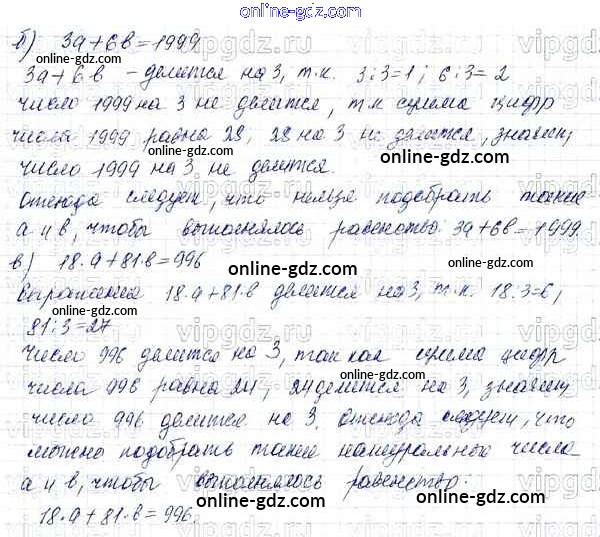 online-gdz.com
б) 3а+6в=1999
3а+6в - делится на 3, т.к. 3:3=1; 6:3=2
число 1999 на 3 не делится, т.к сумма цифр
числа 1999 равна 28, 28 на 3 не делится, значит,
число 1999 на 3 не делится.
Отсюда следует, что нельзя подобрать такие
а и в, чтобы выполнялось равенство: 3а+6в=1999
в) 18·а+81·в=996
выражение 18·а+81·в делится на 3, т.к. 18:3=6,
81:3=27
Число 996 делится на 3, так как сумма цифр
числа 996 равна 24, 24 делится на 3, значит,
число 996 делится на 3. Отсюда следует, что
можно подобрать такие натуральное числа
а и в, чтобы выполнялось равенство:
18·а+81·в=996.